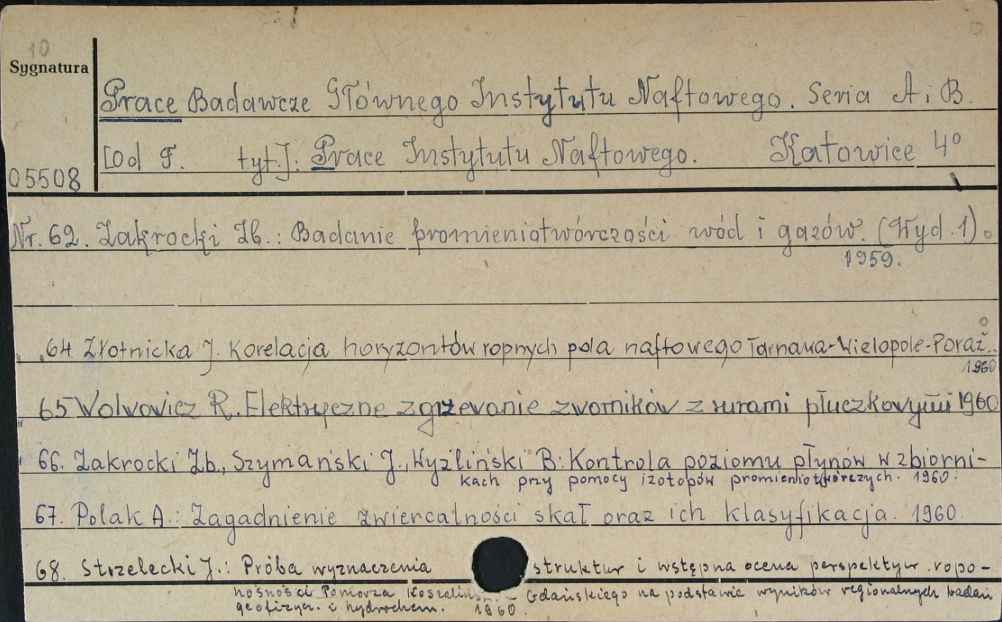 10
Sygnatura
Prace Badawcze Głównego Instytutu Naftowego. Seria A i B.
[od T. tyt.]: Prace Instytutu Naftowego. Katowice 4º
05508
Nr. 62. Zakrocki Zb.: Badanie promieniotwórczości wód i gazów. (Wyd. 1).
1959.
64 Złotnicka J. Korelacja horyzontów ropnych pola naftowego Tarnawa-Wielopole-Poraż.
1960
65 Wolwowicz R. Elektryczne zgrzewanie zworników z rurami płuczkowymi 1960
66. Zakrocki Zb., Szymański J., Wyźliński B: Kontrola poziomu płynów w zbiorni-
kach przy pomocy izotopów promieniotwórczych. 1960.
67. Polak A.: Zagadnienie zwiercalności skał oraz ich klasyfikacja. 1960.
68. Strzelecki J.: Próba wyznaczenia struktur i wstępna ocena perspektyw. ropo-
nośności Pomorza Gdańskiego na podstawie wyników regionalnych badań
geofizycz. i hydrochem. 1960.